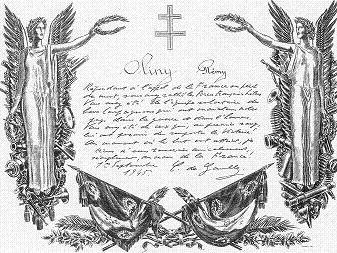 Rémy
Répondant à l'appel de la France en péril
de mort, vous avez rallié les Forces françaises libres.
Vous avez été de l'équipe volontaire des
bons compagnons qui ont maintenu notre
pays dans la guerre et dans l'honneur.
Vous avez été de ceux qui, au premier rang,
lui ont permis de remporter la Victoire.
Au moment où le but est atteint, je
tiens à vous remercier amicalement,
simplement, au nom de la France !
1er septembre
1945.
C. de Gaulle